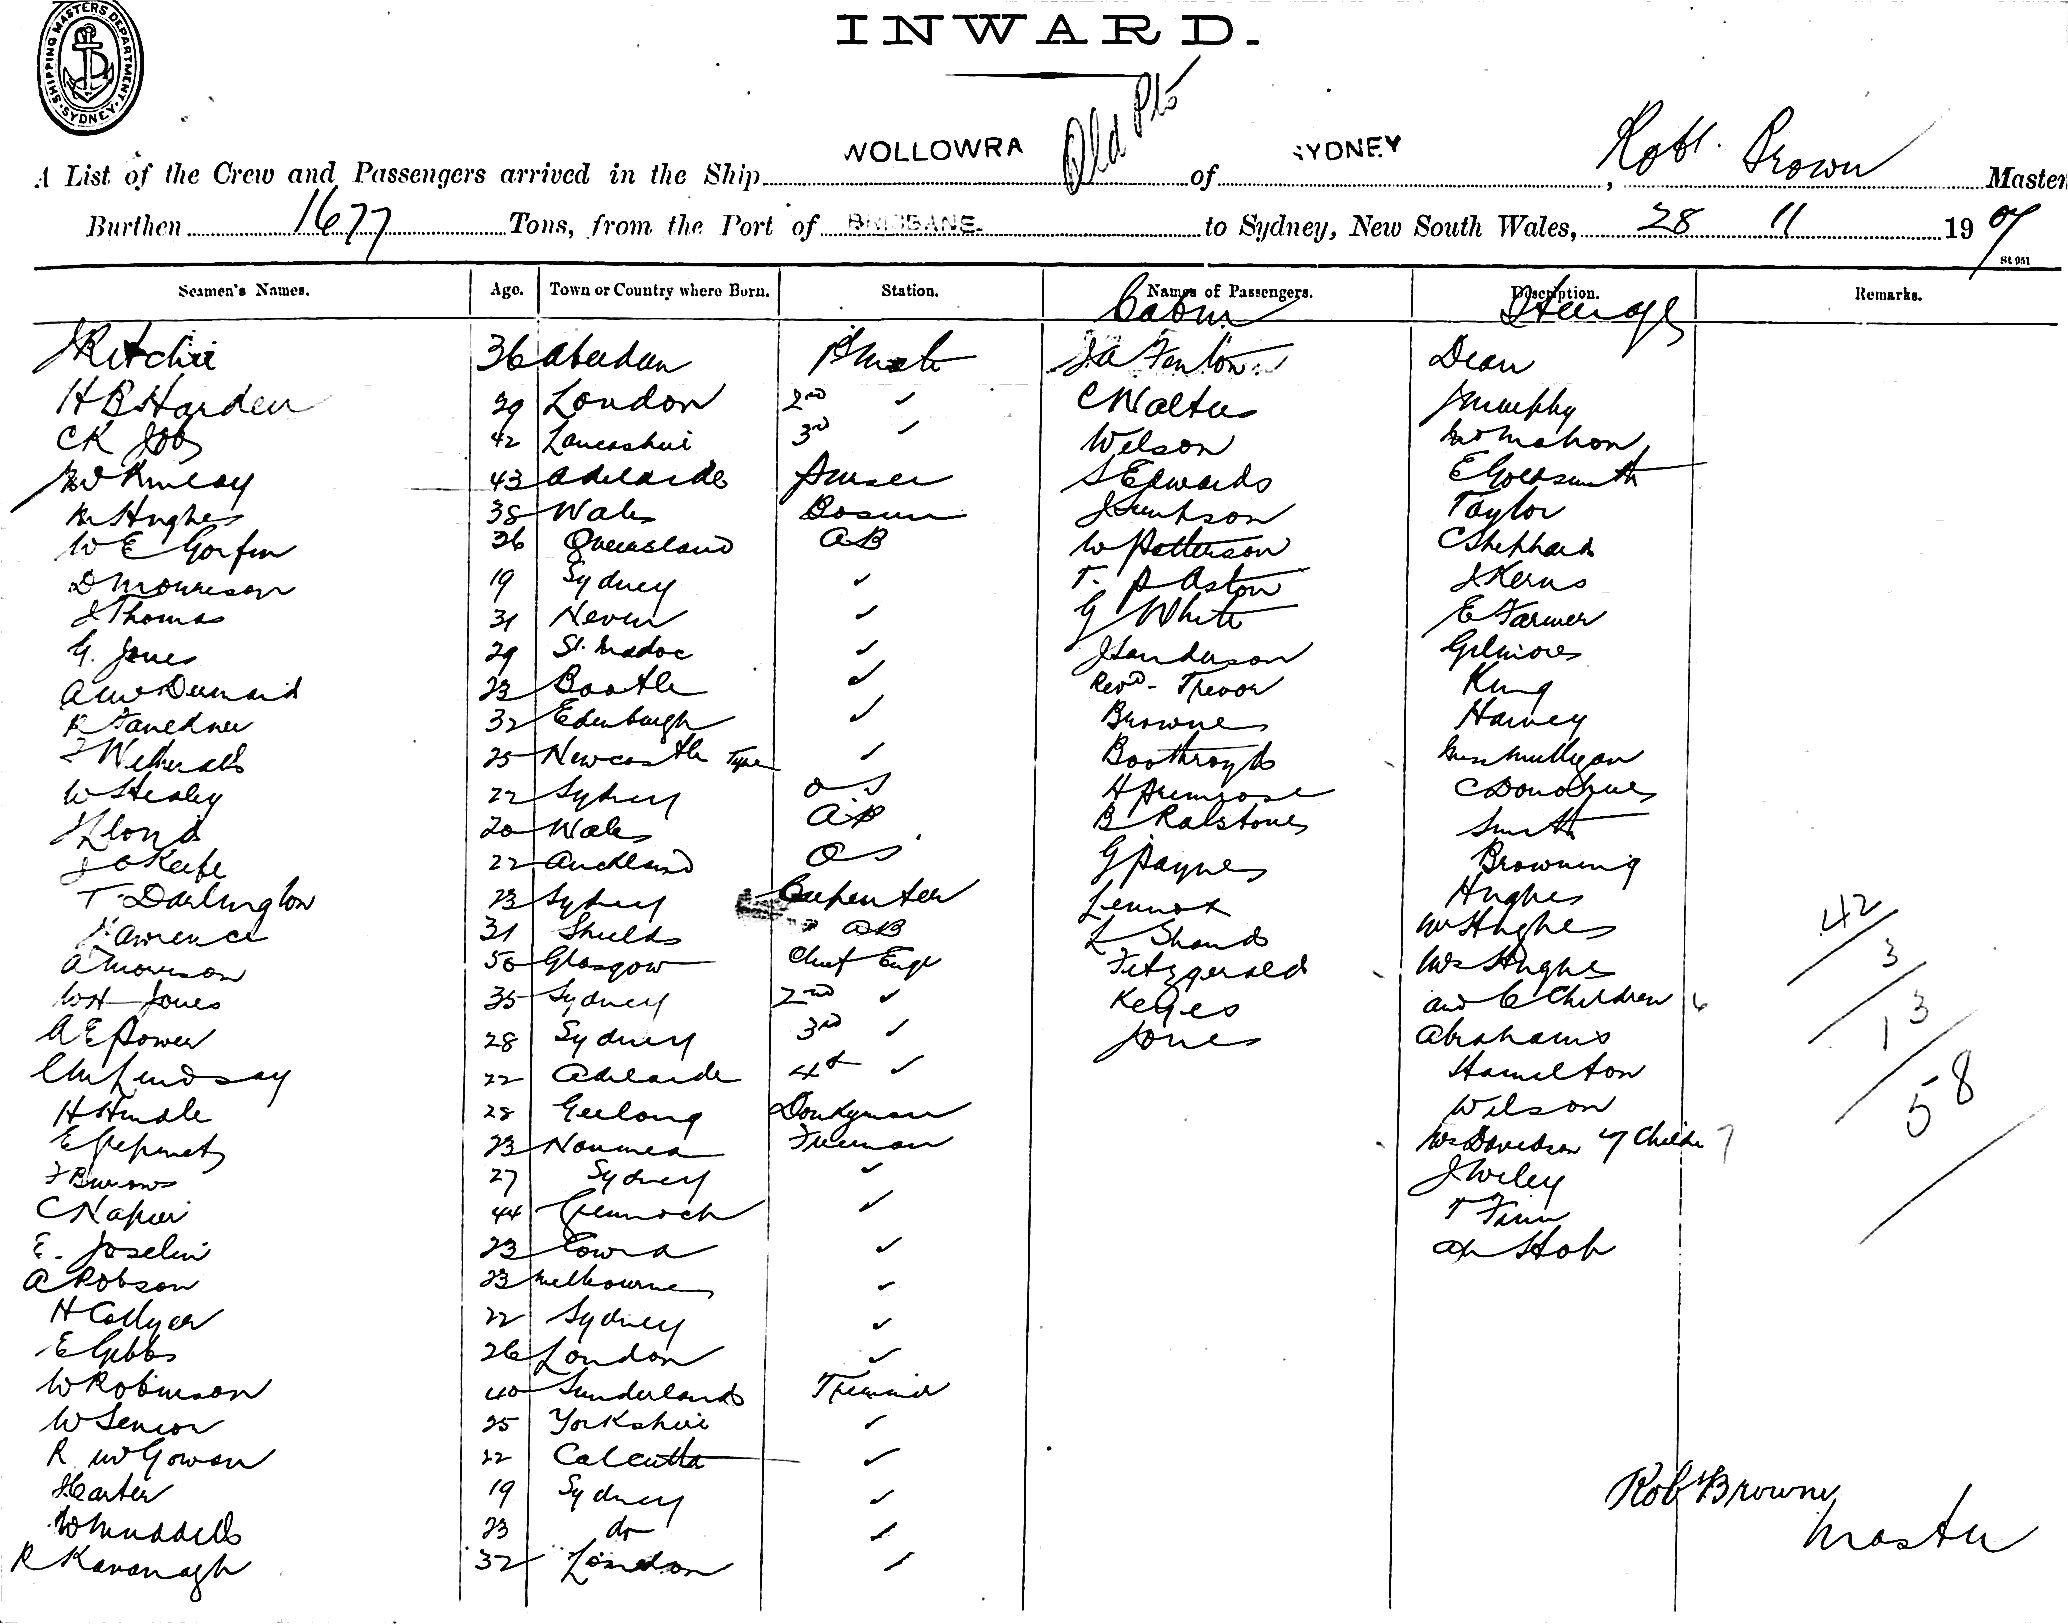 SHIPPING MASTERS DEPARTMENT. SYDNEY
INWARD.
A List of the Crew and Passengers arrived in the Ship WOLLOWRA Old Pts of SYDNEY, Robt. Brown Master
Burthen 1677 Tons, from the Port of BRISBANE. to Sydney, New South Wales, 28 11 1907
St 951
Seamen's Names. Age. Town or Country where Born. Station. Names of Passengers. Description. Remarks.
Cabin Steerage
J Ritchie 36 Aberdeen 1st Mate J A Fenton Dean
H B Harden 29 London 2nd ✓ C Walters J Murphy
C K 42 Lancashire 3rd ✓ Wilson McMahon
McKinlay 43 Adelaide Purser S Edwards E Goldsmith
M Hughes 38 Wales Bosun J Simpson Taylor
W E Gorfin 36 Queensland AB W Patterson C Shephard
D Morrison 19 Sydney ✓ T. P Aston J Kerns
J Thomas 31 Nevin ✓ G White E Farmer
G. Jones 29 St. Madoc ✓ J Sanderson Gilmore
A McDermaid 23 Bootle ✓ Revd. Trevor King
R Faulkner 32 Edinburgh ✓ Browne Harvey
25 Newcastle Tyne ✓ Boothroyd Mrs Mulligan
W Healey 22 Sydney OS H Primrose C Donohue
J Lloyd 20 Wales AB B Ralstone Smith
J O Keefe 22 Auckland OS G Payne Browning
T. Darlington 23 Sydney Carpenter Lennox Hughes
Lawrence 31 Shields AB L Shand Mr Hughes
A Morrison 50 Glasgow Chief Engr Fitzgerald Mrs Hughes
W H Jones 35 Sydney 2nd ✓ Keyes and 6 Children 6
A E Power 28 Sydney 3rd ✓ Jones Abrahams
C M Lindsay 22 Adelaide 4th ✓ Hamilton
H Hindle 28 Geelong Donkyman Wilson
E 23 Noumea Fireman Mrs Davidson 7 Childn 7
F Burrows 27 Sydney ✓ J Wiley
C Napier 44 Greenock ✓ T Finn
E. Joselin 23 Cowra ✓ Ah Hob
A Robson 23 Melbourne ✓
H Collyer 22 Sydney ✓
E Gibbs 26 London ✓
W Robinson 40 Sunderland Trimmer
W Senior 25 Yorkshire ✓
R McGowan 22 Calcutta ✓
J Carter 19 Sydney ✓
W Muddell 23 do ✓
R Kavanagh 32 London ✓
42
3
13
58
Robt Browne
Master